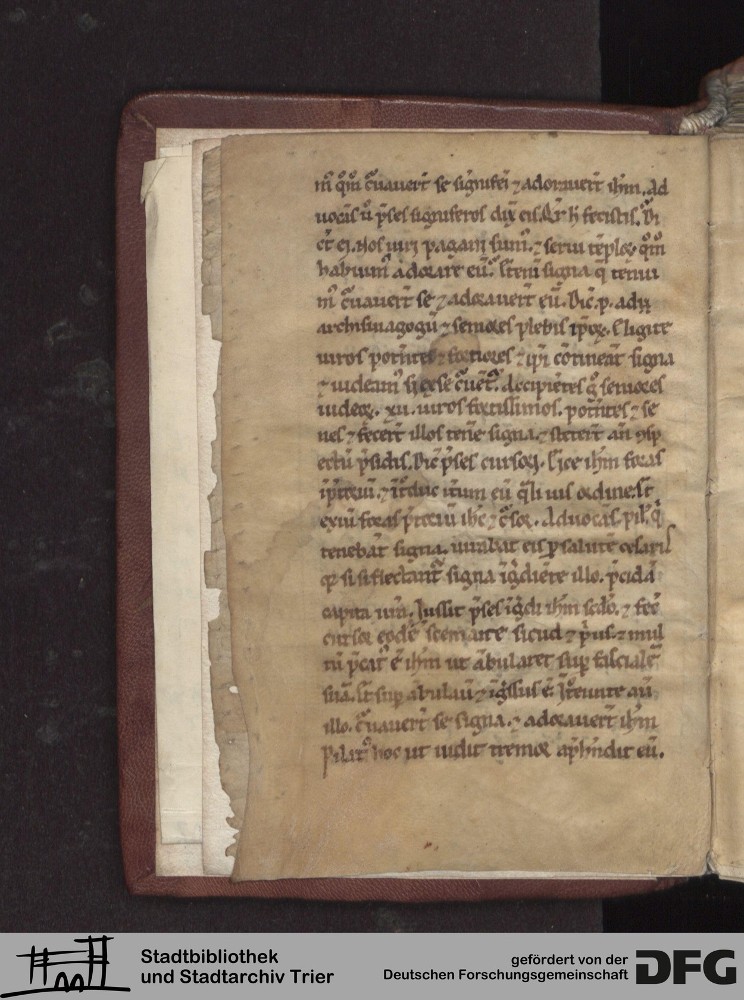 m̄ qm̄ c̄uauert̄ se signifei ⁊ adorauert̄ ihm̄. Ad
uocās ū p̄ses signiferos dix̄ eis. Q̄r h̄ fecistis. Di
ct̄ ei. Nos uiri pagani sum᷒. ⁊ serui tēploꝝ. qm̄
habuim᷒ adorare eū. signa q̄ tenui
m᷒ c̄uauert̄ se ⁊ adorauert̄ eū. Dic̄ .p. ad
archisinagogū ⁊ seniores plebis ip̄oꝝ. Eligite
uiros potētes ⁊ fortiores ⁊ ip̄i cōtineāt signa
⁊ uideam᷒ si ex se c̄uēt᷒. Accipiētes g̊ seniores
iudeoꝝ. xii. uiros fortissimos. potētes ⁊ se
nes ⁊ fecert̄ illos tene signa. ⁊ stetert̄ an̄ ꝯsp
ectū p̄sidis. Dic̄ p̄ses cursoꝝ. Eice ihm̄ foras
p̄toriū. ⁊ īt̄duc itum eū q̄li uis ordine.
exiū foras p̄toriū ihc̄ ⁊ c̄sor. Aduocās. pil᷒. q̄
tenebāt signa. iurabat eis ꝑ salutē cesaris
qꝫ si si flectant̄ signa īg̊diēte illo. p̄cidā
capita ur̄a. Jussit p̄ses īg̊di ihm̄ scd̄o. ⁊ fec̄
cursor eodē scemate sicud ⁊ p̄us. ⁊ mul
tū p̄cat᷒ ē ihm̄ ut ābularet sup̄ fascialē
suā. sup̄ ābulauit ⁊ īg̊ssus ē. Jt̄eunte au̅
illo. c̄uauert̄ se signa. ⁊ adorauert̄ ihm̄
Pilat᷒ hoc ut uidit tremor ap̄hndit eū.
Stadtbibliothek
und Stadtarchiv Trier
gefördert von der
Deutschen Forschungsgemeinschaft
DFG